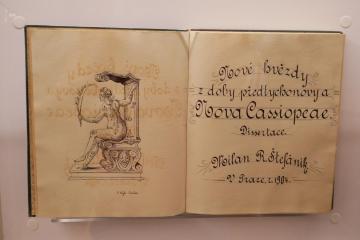 Nové hvězdy
z doby předtychonovy a
Nova Cassiopeae.
Dissertace.
Milan R. Štefánik
V Praze, r. 1904.